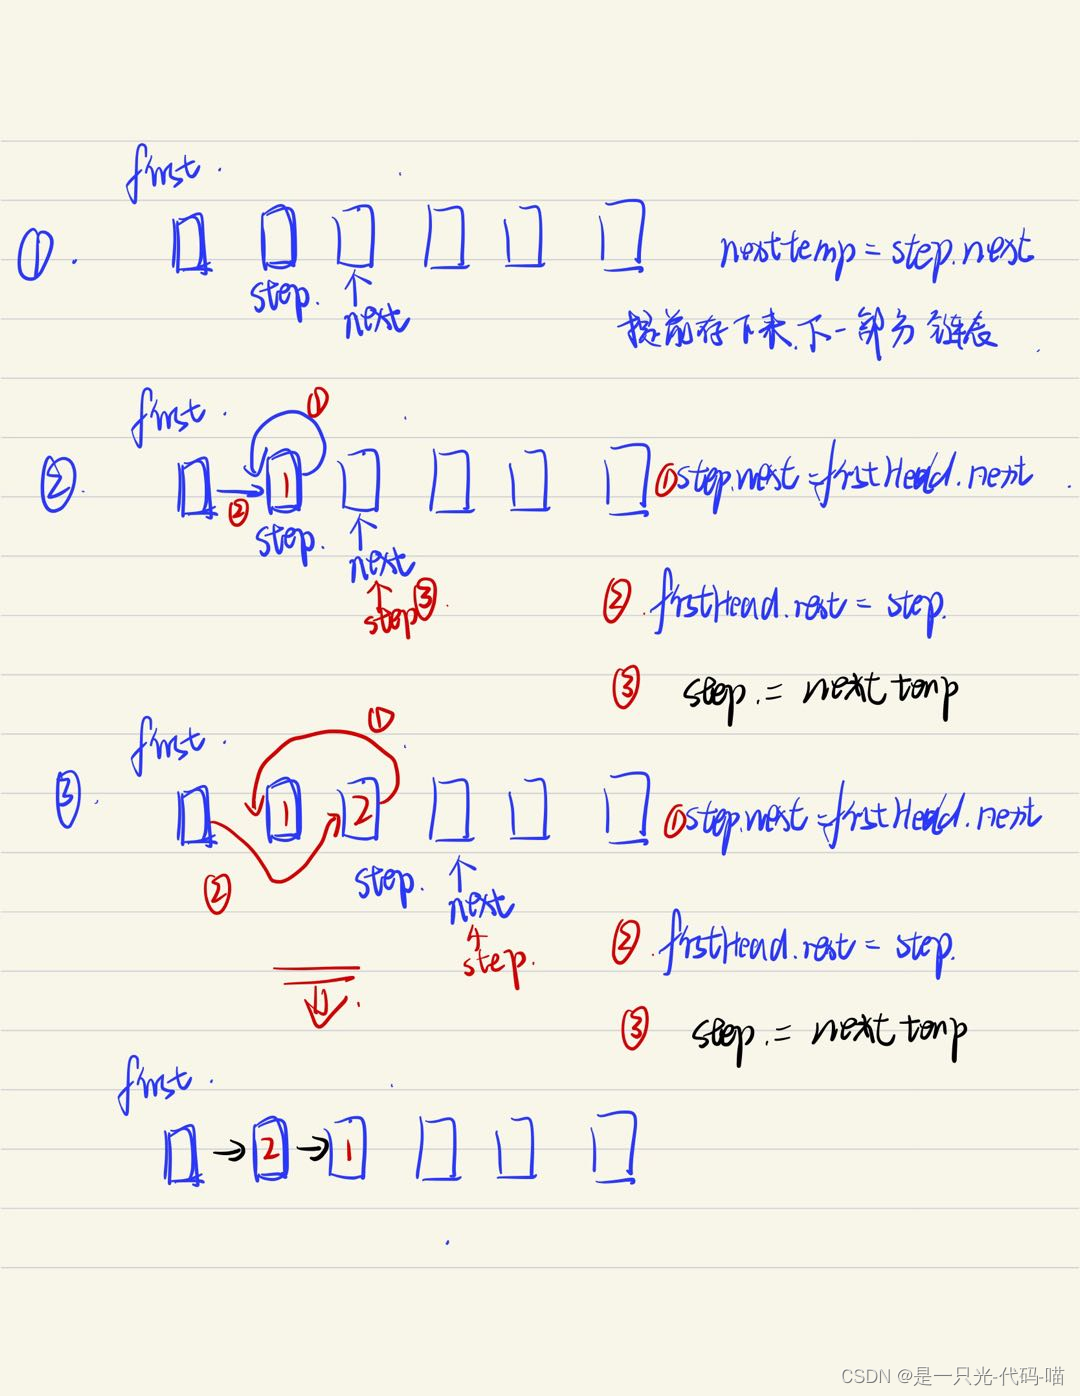 first.
①.
nexttemp = step.next
step.
next
提前存下来.下一部分链表.
first.
①
②.
1
①step.next = firstHead.next.
②
step.
next
step③.
②.firstHead.next = step.
③ step. = nexttemp
first.
①
③.
1 2
①step.next = firstHead.next
②
step.
next
step.
②.firstHead.next = step.
③ step. = nexttemp
first.
2 1
CSDN @是一只光-代码-喵